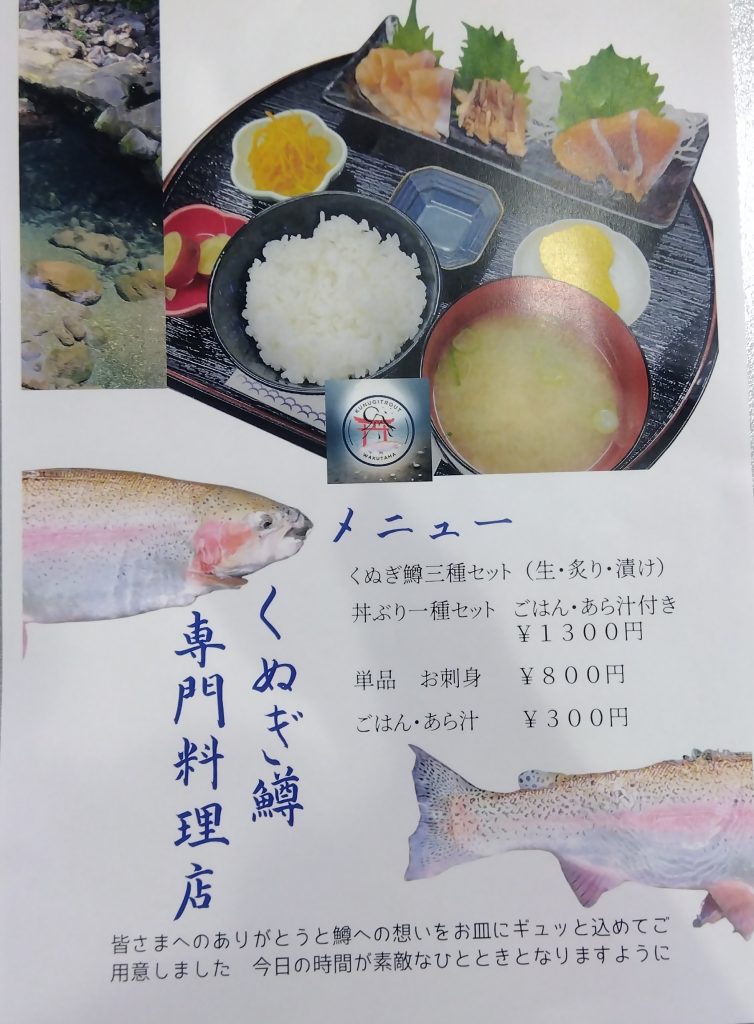 KUNUGITROUT
WAKUTAMA
メニュー
くぬぎ鱒三種セット（生・炙り・漬け）
丼ぶり一種セット　ごはん・あら汁付き
￥１３００円
単品　お刺身　￥８００円
ごはん・あら汁　￥３００円
くぬぎ鱒
専門料理店
皆さまへのありがとうと鱒への想いをお皿にギュッと込めてご
用意しました　今日の時間が素敵なひとときとなりますように